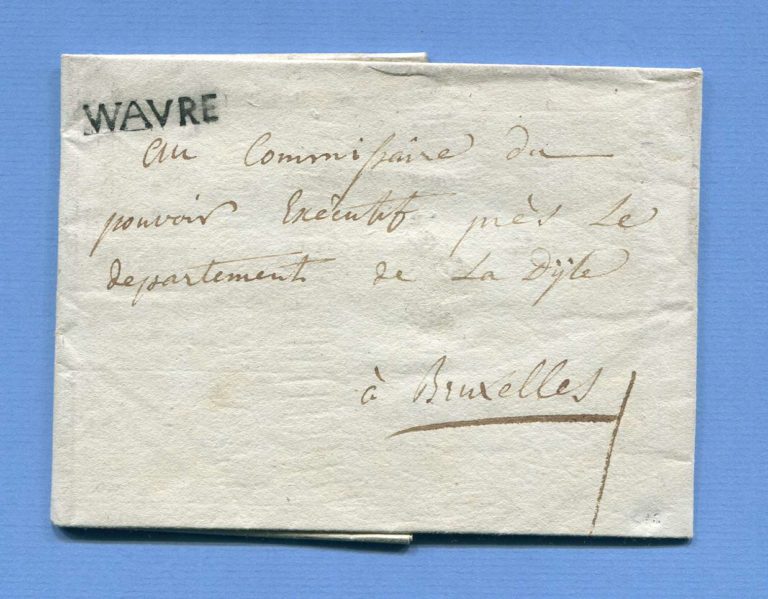 WAVRE
au Commissaire du
pouvoir Exécutif près Le
departement de La Dÿle
à Bruxelles